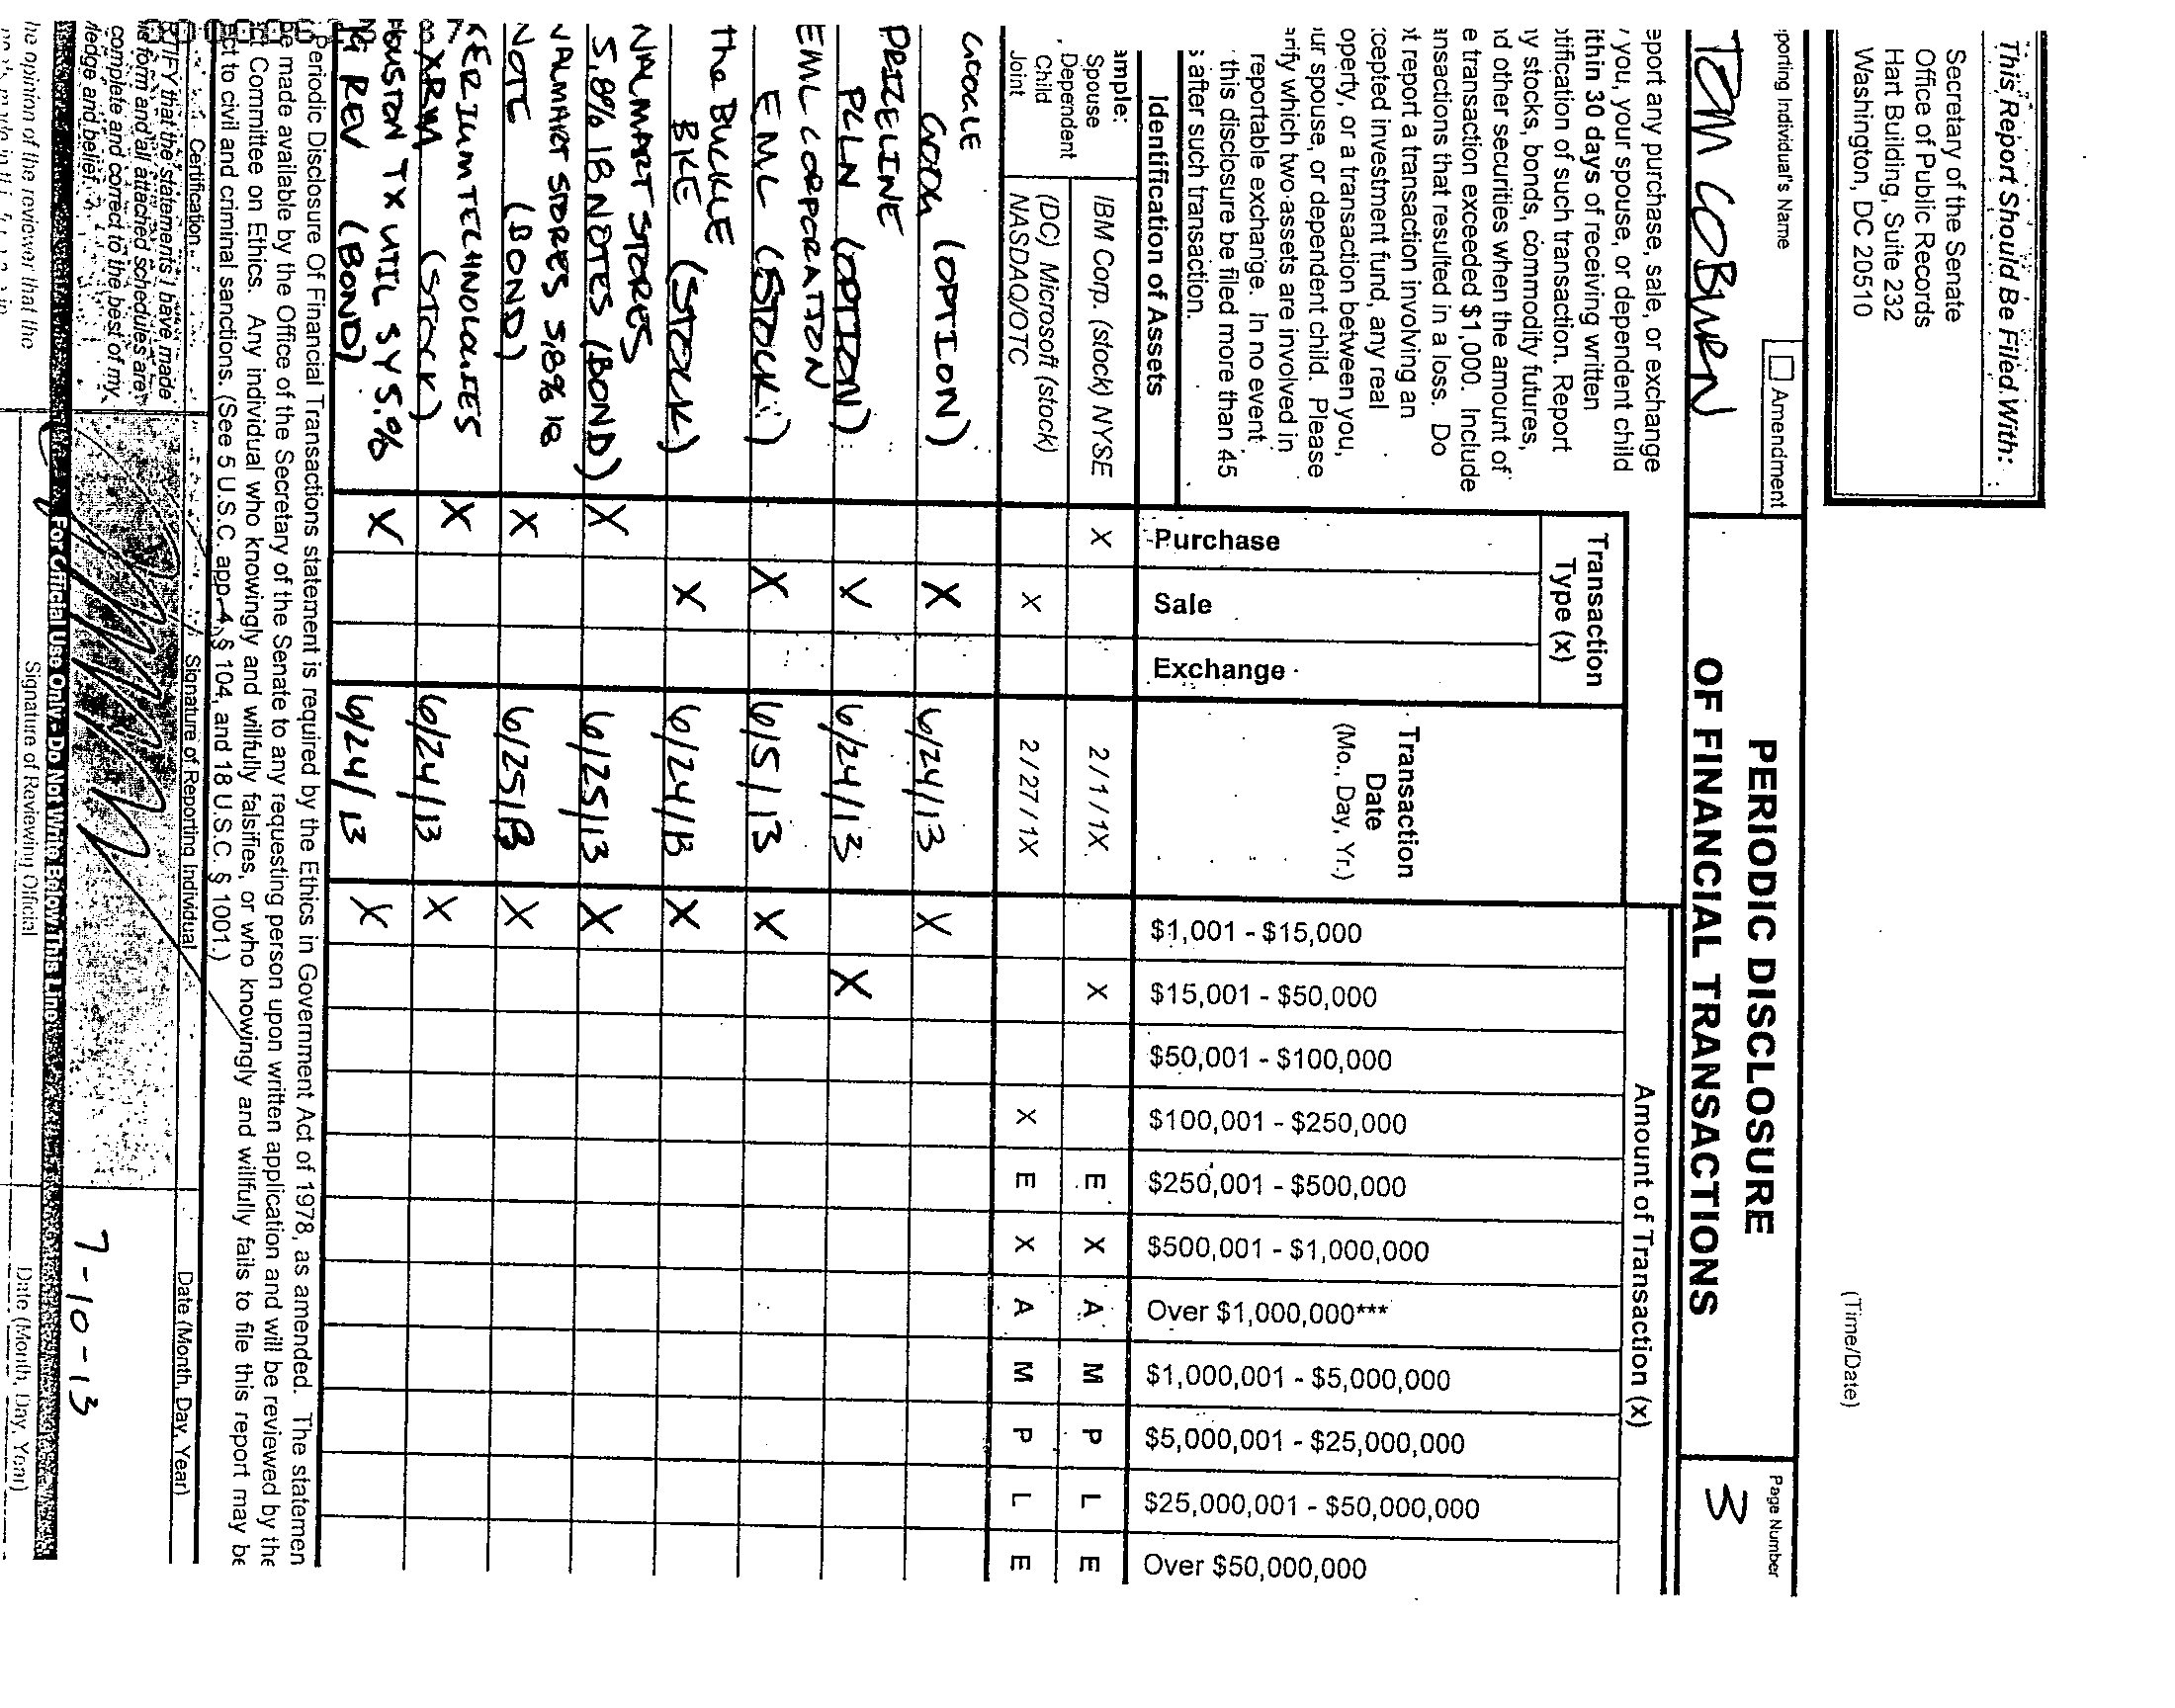 (Time/Date)
This Report Should Be Filed With:
Secretary of the Senate
Office of Public Records
Hart Building, Suite 232
Washington, DC 20510
PERIODIC DISCLOSURE
OF FINANCIAL TRANSACTIONS
porting Individual's Name
Amendment
Page Number
TOM COBURN
3
eport any purchase, sale, or exchange
you, your spouse, or dependent child
ithin 30 days of receiving written
otification of such transaction. Report
ny stocks, bonds, commodity futures,
nd other securities when the amount of
e transaction exceeded $1,000. Include
ansactions that resulted in a loss. Do
ot report a transaction involving an
cepted investment fund, any real
operty, or a transaction between you,
ur spouse, or dependent child. Please
arify which two assets are involved in
reportable exchange. In no event
this disclosure be filed more than 45
s after such transaction.
Transaction
Type (x)
Amount of Transaction (x)
Identification of Assets
Purchase
Sale
Exchange
Transaction
Date
(Mo., Day, Yr.)
$1,001 - $15,000
$15,001 - $50,000
$50,001 - $100,000
$100,001 - $250,000
$250,001 - $500,000
$500,001 - $1,000,000
Over $1,000,000***
$1,000,001 - $5,000,000
$5,000,001 - $25,000,000
$25,000,001 - $50,000,000
Over $50,000,000
ample:
Spouse
Dependent
Child
Joint
IBM Corp. (stock) NYSE X 2/1/1X X E X A M P L E
(DC) Microsoft (stock)
NASDAQ/OTC X 2/27/1X X E X A M P L E
GOOGLE
GOOG (OPTION) X 6/24/13 X
PRIZELINE
PCLN (OPTION) X 6/24/13 X
EML CORPORATION
EML (STOCK) X 6/5/13 X
the BUCKLE
BKE (STOCK) X 6/24/13 X
WALMART STORES
5.8% 18 NOTES (BOND) X 6/25/13 X
WALMART STORES 5.8% 18
NOTE (BOND) X 6/25/13 X
XERIUM TECHNOLOGIES
XRM (STOCK) X 6/24/13 X
HOUSTON TX UTIL SYS .9%
REV (BOND) X 6/24/13 X
Periodic Disclosure Of Financial Transactions statement is required by the Ethics in Government Act of 1978, as amended. The statemen
be made available by the Office of the Secretary of the Senate to any requesting person upon written application and will be reviewed by the
ct Committee on Ethics. Any individual who knowingly and willfully falsifies, or who knowingly and willfully fails to file this report may be
ect to civil and criminal sanctions. (See 5 U.S.C. app. 4, § 104, and 18 U.S.C. § 1001.)
Certification
Signature of Reporting Individual
Date (Month, Day, Year)
RTIFY that the statements I have made
form and all attached schedules are
complete and correct to the best of my
ledge and belief.
7-10-13
For Official Use Only - Do Not Write Below This Line
he opinion of the reviewer that the
Signature of Reviewing Official
Date (Month, Day, Year)